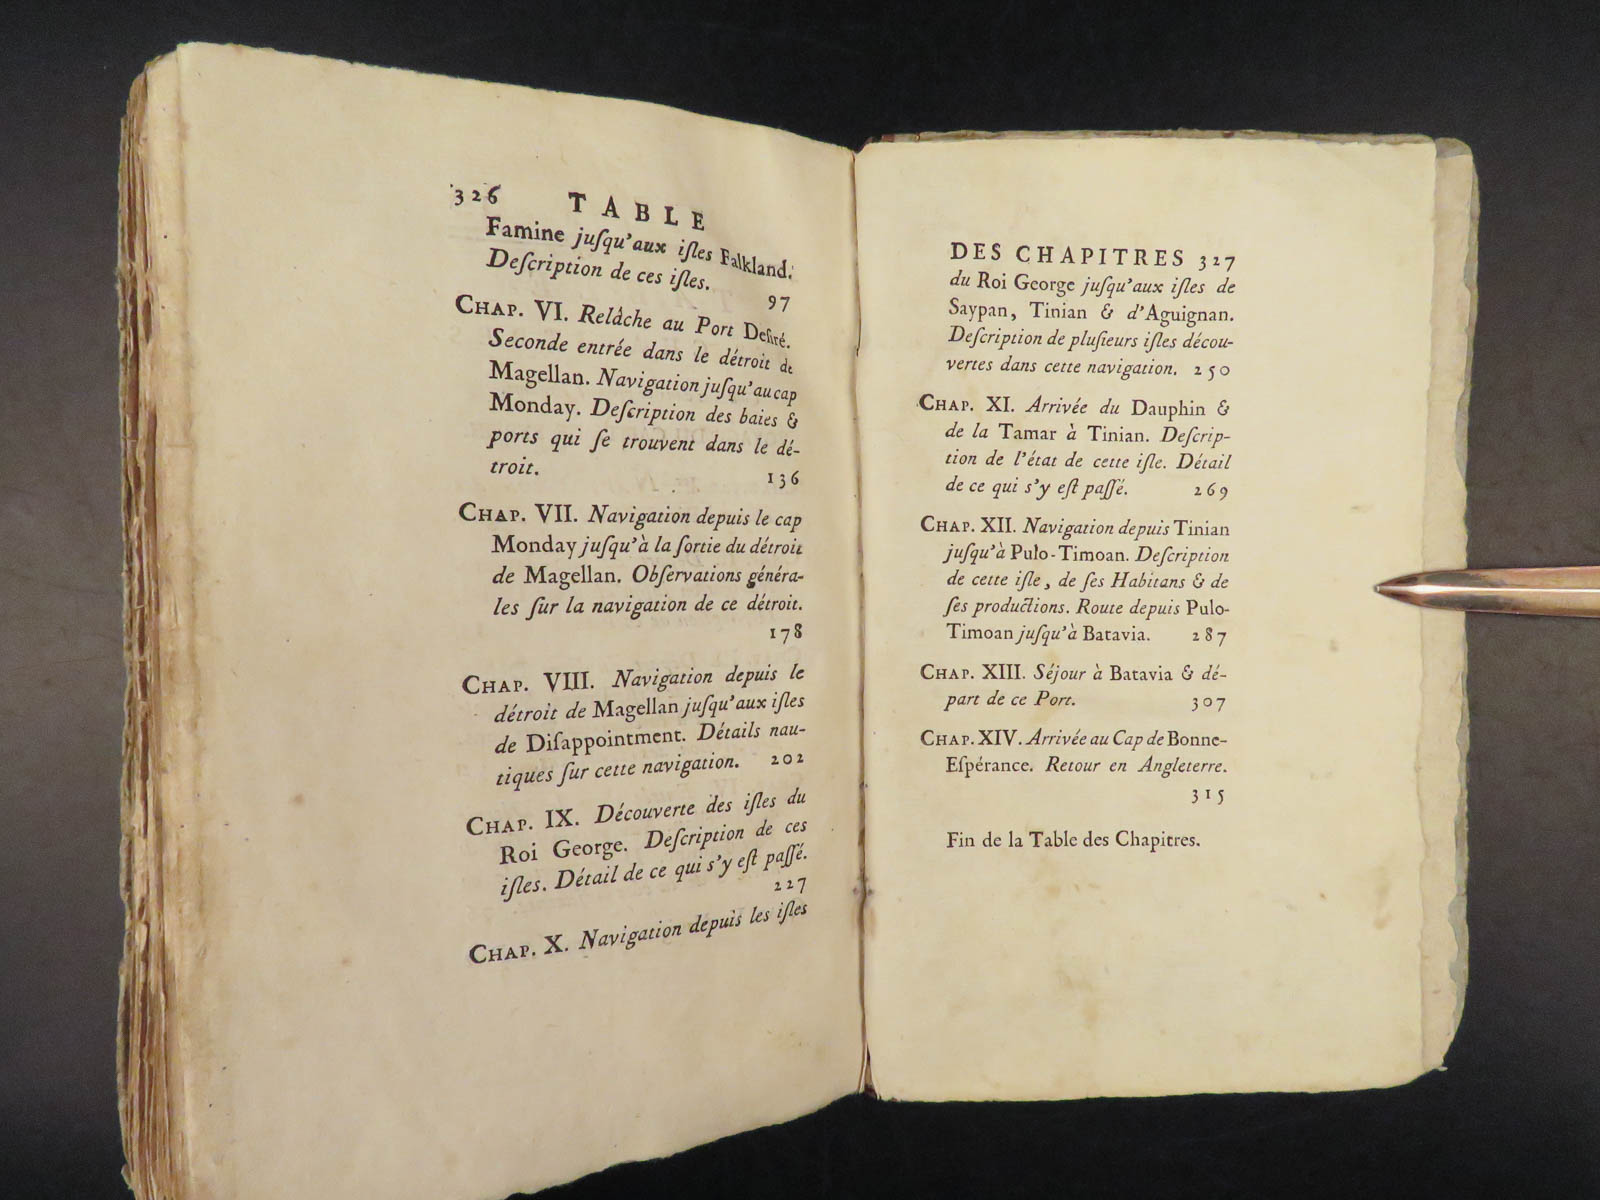 326 TABLE
Famine juſqu'aux iſles Falkland.
Deſcription de ces iſles. 97
CHAP. VI. Relâche au Port Deſiré.
Seconde entrée dans le détroit de
Magellan. Navigation juſqu'au cap
Monday. Deſcription des baies &
ports qui ſe trouvent dans le dé-
troit. 136
CHAP. VII. Navigation depuis le cap
Monday juſqu'à la ſortie du détroit
de Magellan. Obſervations généra-
les ſur la navigation de ce détroit.
178
CHAP. VIII. Navigation depuis le
détroit de Magellan juſqu'aux iſles
de Diſappointment. Détails nau-
tiques ſur cette navigation. 202
CHAP. IX. Découverte des iſles du
Roi George. Deſcription de ces
iſles. Détail de ce qui s'y eſt paſſé.
227
CHAP. X. Navigation depuis les iſles
DES CHAPITRES 327
du Roi George juſqu'aux iſles de
Saypan, Tinian & d'Aguignan.
Deſcription de pluſieurs iſles décou-
vertes dans cette navigation. 250
CHAP. XI. Arrivée du Dauphin &
de la Tamar à Tinian. Deſcrip-
tion de l'état de cette iſle. Détail
de ce qui s'y eſt paſſé. 269
CHAP. XII. Navigation depuis Tinian
juſqu'à Pulo-Timoan. Deſcription
de cette iſle, de ſes Habitans & de
ſes productions. Route depuis Pulo-
Timoan juſqu'à Batavia. 287
CHAP. XIII. Séjour à Batavia & dé-
part de ce Port. 307
CHAP. XIV. Arrivée au Cap de Bonne-
Eſpérance. Retour en Angleterre.
315
Fin de la Table des Chapitres.